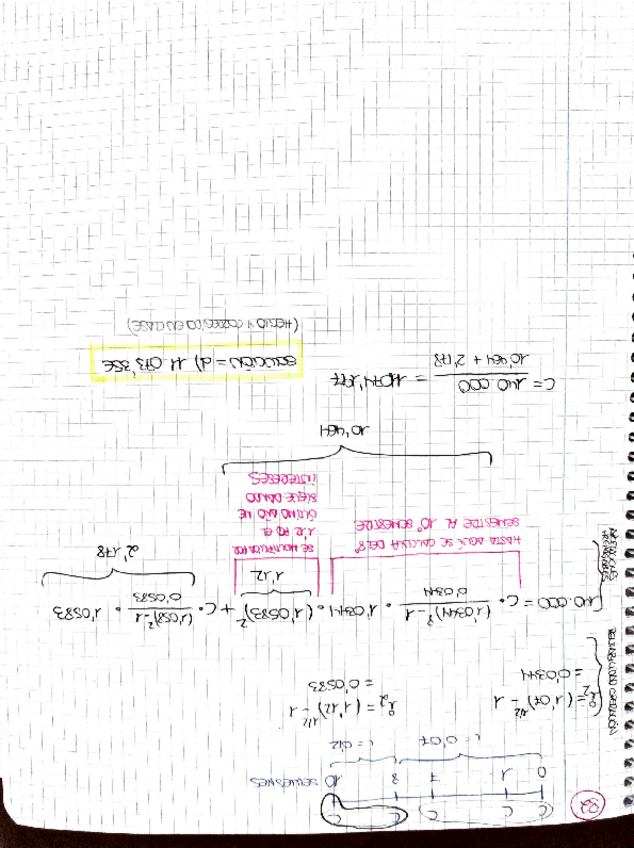 82
C C C C C
0 1 7 8 10 SEMESTRES
i = 0'07 i = 0'12
i₂ = (1'07)^1/2 - 1
= 0'0344
i₂ = (1'12)^1/2 - 1
= 0'0583
140.000 = C · (1'0344)^8 - 1 / 0'0344 · 1'0344 · (1'0583)^2 + C · (1'0583)^2 - 1 / 0'0583 · 1'0583
1'12
2'178
HASTA AQUÍ SE CALCULA DEL 8º
SEMESTRE AL 10º SEMESTRE
SE MULTIPLICA POR
1'12 PQ EL
ÚLTIMO AÑO ME
SIGUE DANDO
INTERESES
10'464
C = 140.000 / 10'464 + 2'178 = 11074'197
SOLUCIÓN = d) 11 073'35€
(HECHO Y CORREGIDO EN CLASE)